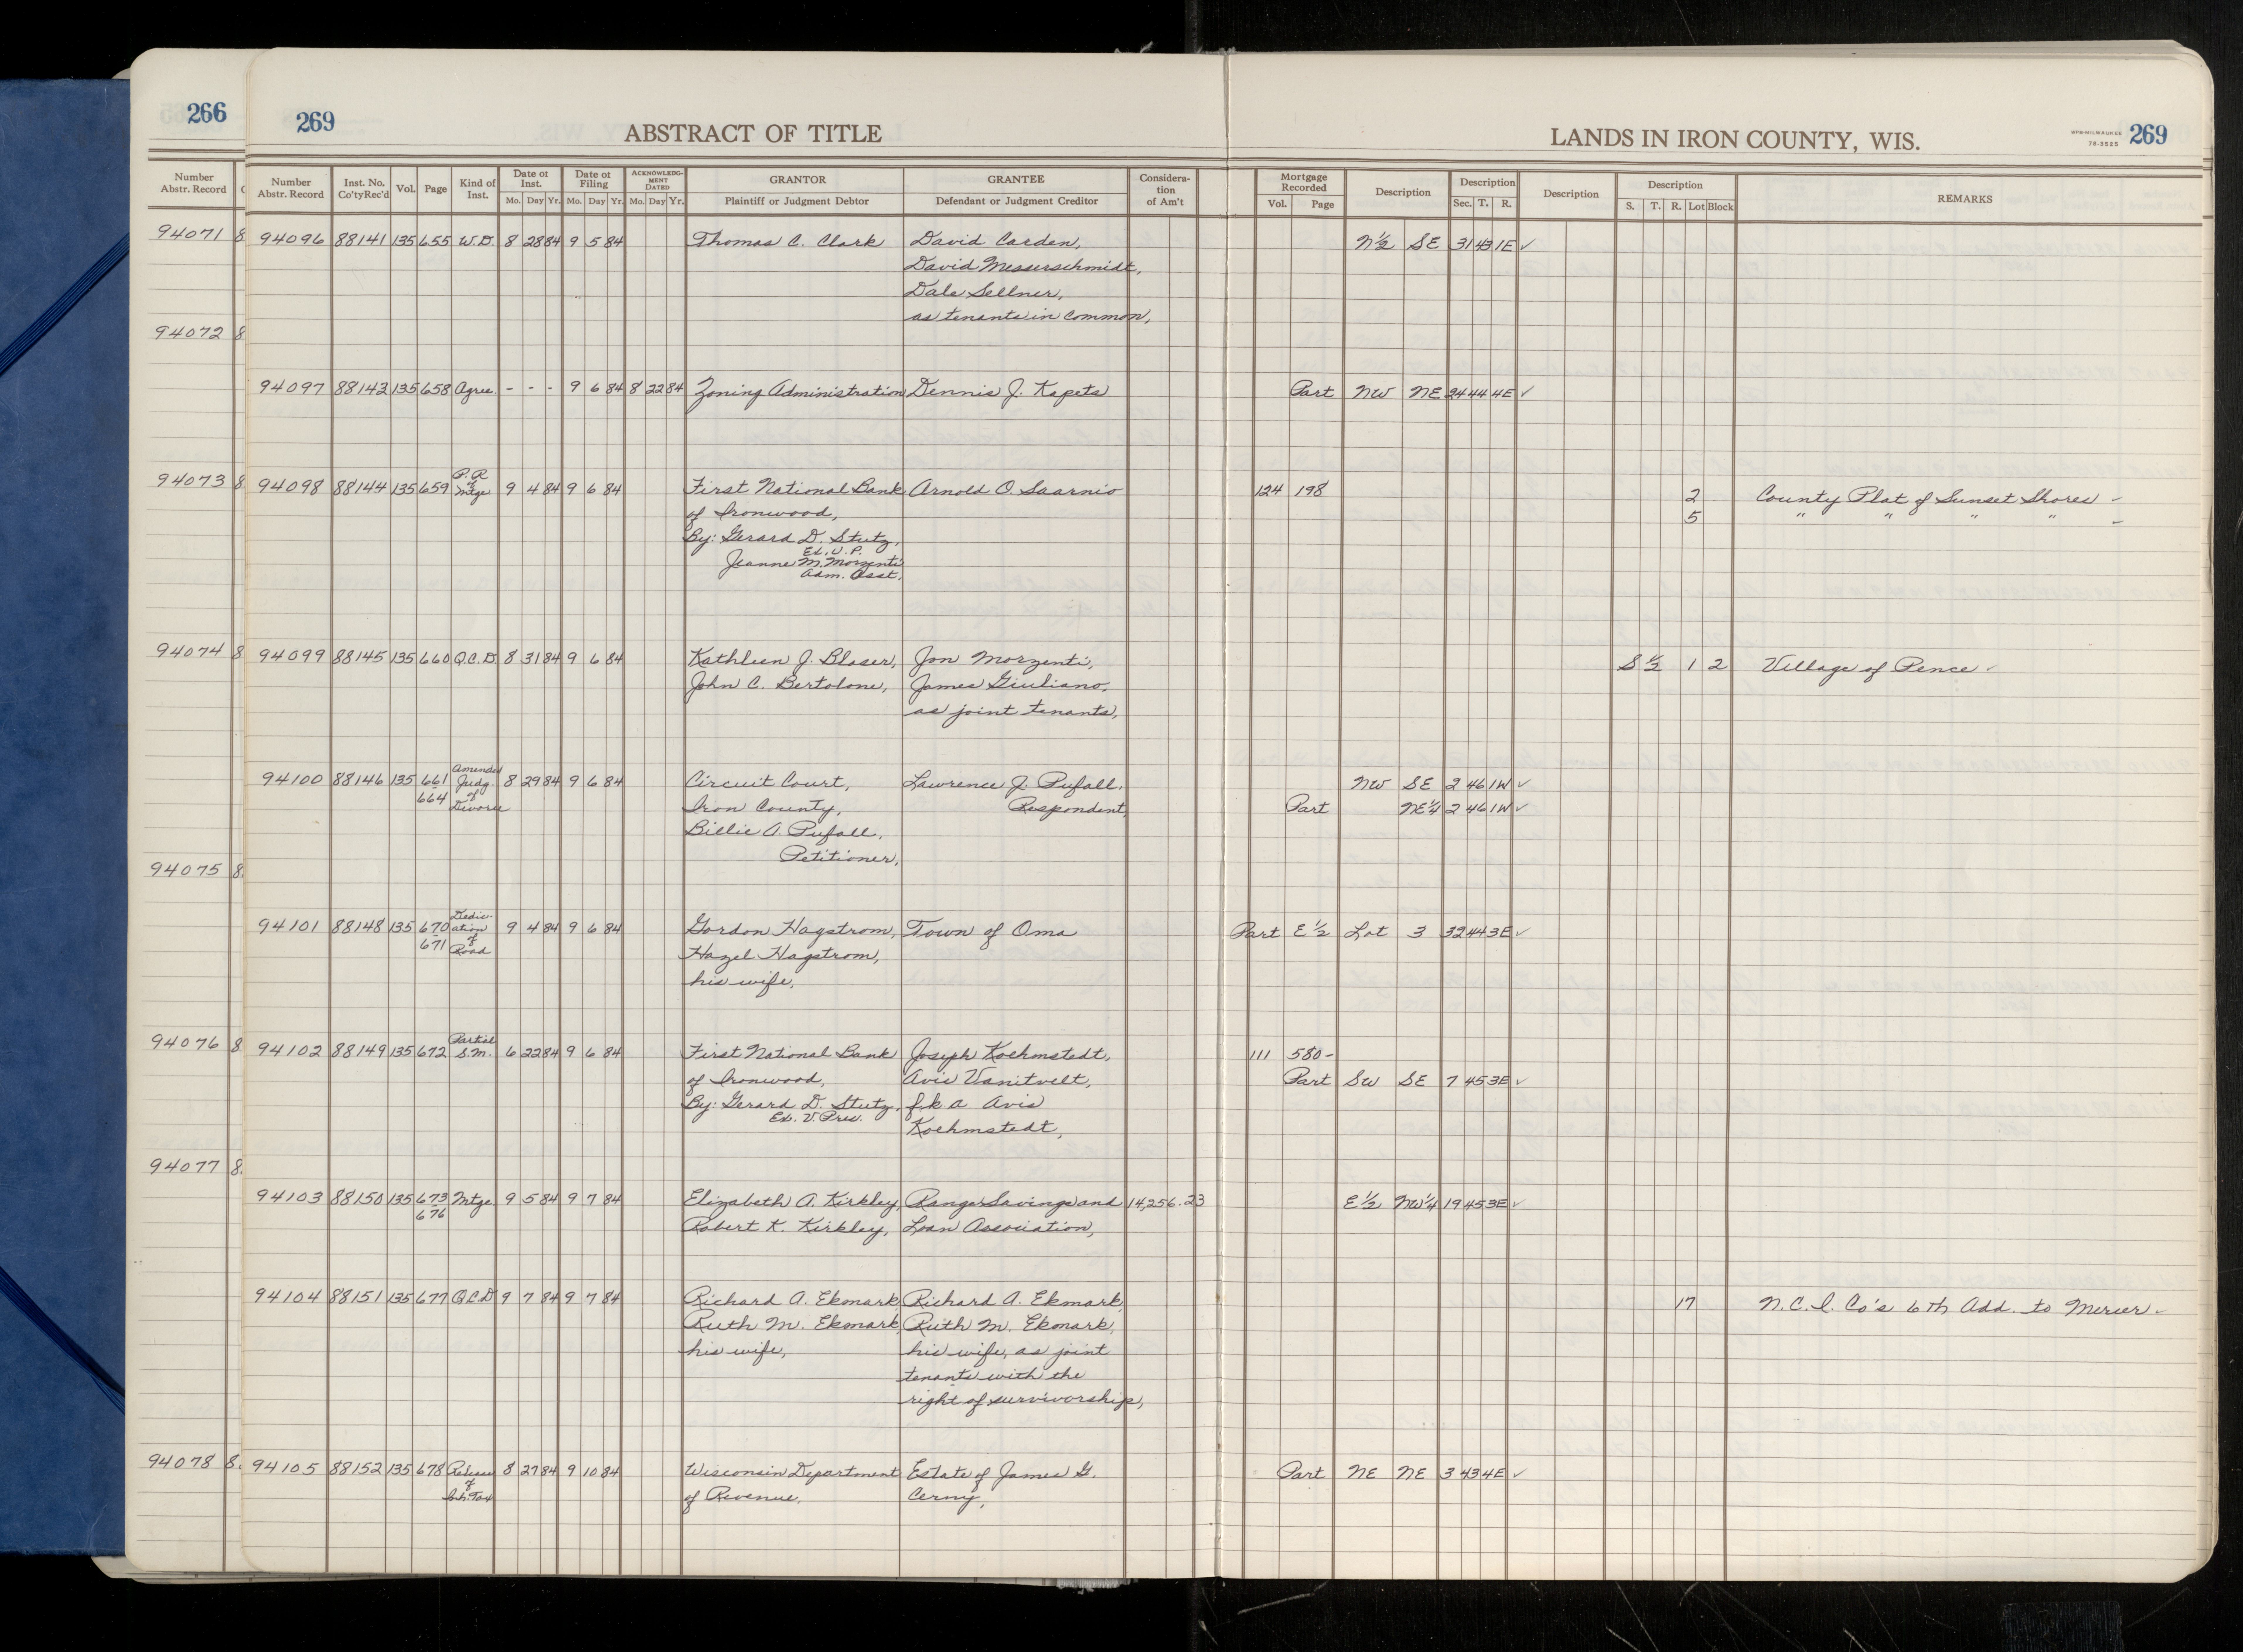 266
269
ABSTRACT OF TITLE
LANDS IN IRON COUNTY, WIS.
MPB-MILWAUKEE
78-3525
269
Number
Abstr. Record
Number
Abstr. Record
Inst. No.
Co'tyRec'd
Vol.
Page
Kind of
Inst.
Date of
Inst.
Mo. Day Yr.
Date of
Filing
Mo. Day Yr.
ACKNOWLEDG-
MENT
DATED
Mo. Day Yr.
GRANTOR
Plaintiff or Judgment Debtor
GRANTEE
Defendant or Judgment Creditor
Considera-
tion
of Am't
Mortgage
Recorded
Vol. Page
Description
Description
Sec. T. R.
Description
Description
S. T. R. Lot Block
REMARKS
94071 8
94072 8
94073 8
94074 8
94075 8
94076 8
94077 8
94078 8
94096 88141 135 655 W.D. 8 28 84 9 5 84 Thomas C. Clark David Carden, N½ SE 31 43 1E ✓
David Messerschmidt,
Dale Sellner,
as tenants in common,
94097 88143 135 658 Agree. - - - 9 6 84 8 22 84 Zoning Administration Dennis J. Kapets Part NW NE 24 44 4E ✓
94098 88144 135 659 P.R of Mtge 9 4 84 9 6 84 First National Bank Arnold O. Saarnio 124 198 2 County Plat of Sunset Shores -
of Ironwood, 5 " " " " -
By: Gerard D. Stutz,
Ex. V.P.
Jeanne M. Morzenti
Adm. Asst.
94099 88145 135 660 Q.C.D. 8 31 84 9 6 84 Kathleen J. Blaser, Jon Morzenti, S½ 1 2 Village of Pence ✓
John C. Bertolone, James Giuliano,
as joint tenants,
94100 88146 135 661-664 Amended Judg. of Divorce 8 29 84 9 6 84 Circuit Court, Lawrence J. Pufall, NW SE 2 46 1W ✓
Iron County, Respondent, Part NE¼ 2 46 1W ✓
Billie A. Pufall,
Petitioner,
94101 88148 135 670-671 Dedication of Road 9 4 84 9 6 84 Gordon Hagstrom, Town of Oma Part E½ Lot 3 32 44 3E ✓
Hazel Hagstrom,
his wife,
94102 88149 135 672 Partial S.M. 6 22 84 9 6 84 First National Bank Joseph Koehmstedt, 111 580-
of Ironwood, Avis Vanitvelt, Part SW SE 7 45 3E ✓
By: Gerard D. Stutz, f.k.a Avis
Ex. V. Pres. Koehmstedt,
94103 88150 135 673-676 Mtge 9 5 84 9 7 84 Elizabeth A. Kirkley, Ranger Savings and 14,256.23 E½ NW¼ 19 45 3E ✓
Robert K. Kirkley, Loan Association,
94104 88151 135 677 Q.C.D 9 7 84 9 7 84 Richard A. Ekmark, Richard A. Ekmark, 17 N.C.I. Co's 6th Add. to Mercer -
Ruth M. Ekmark, Ruth M. Ekmark,
his wife, his wife, as joint
tenants with the
right of survivorship,
94105 88152 135 678 Release of Inh. Tax 8 27 84 9 10 84 Wisconsin Department Estate of James G. Part NE NE 3 43 4E ✓
of Revenue, Cerny,